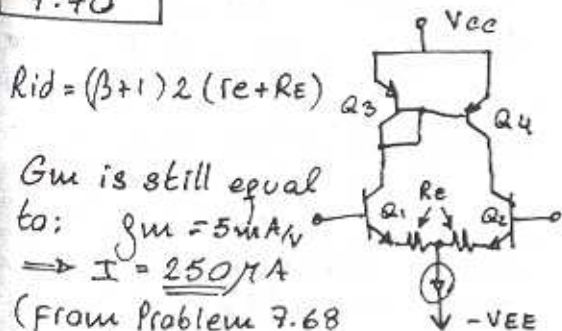 7.70
Vcc
Rid = (β+1) 2 (re+RE)
Q3
Q4
Gm is still equal
to: gm = 5mA/V
Re
Q1
Q2
⇒ I = 250 μA
(From Problem 7.68
-VEE